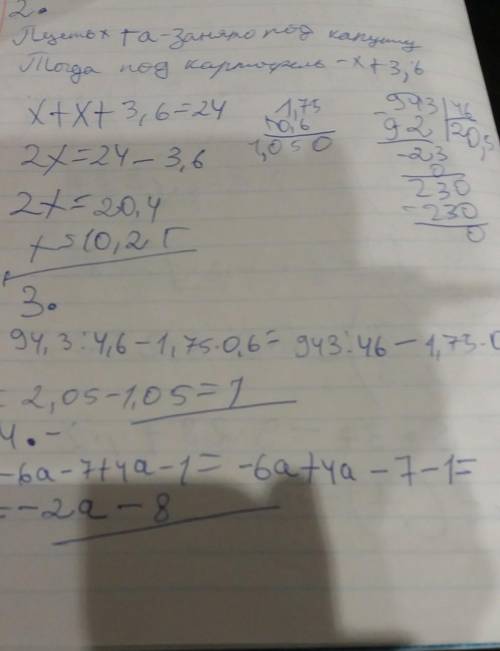 2.
Пусть x га - занято под капусту
Тогда под картофель - x + 3,6
x + x + 3,6 = 24
2x = 24 - 3,6
2x = 20,4
x = 10,2 Г
1,75
0,6
1,050
943 | 46
92 | 20,5
- 23
0
230
- 230
0
3.
94,3 : 4,6 - 1,75 · 0,6 = 943 : 46 - 1,75 · 0
= 2,05 - 1,05 = 1
4. -
-6a - 7 + 4a - 1 = -6a + 4a - 7 - 1 =
= -2a - 8